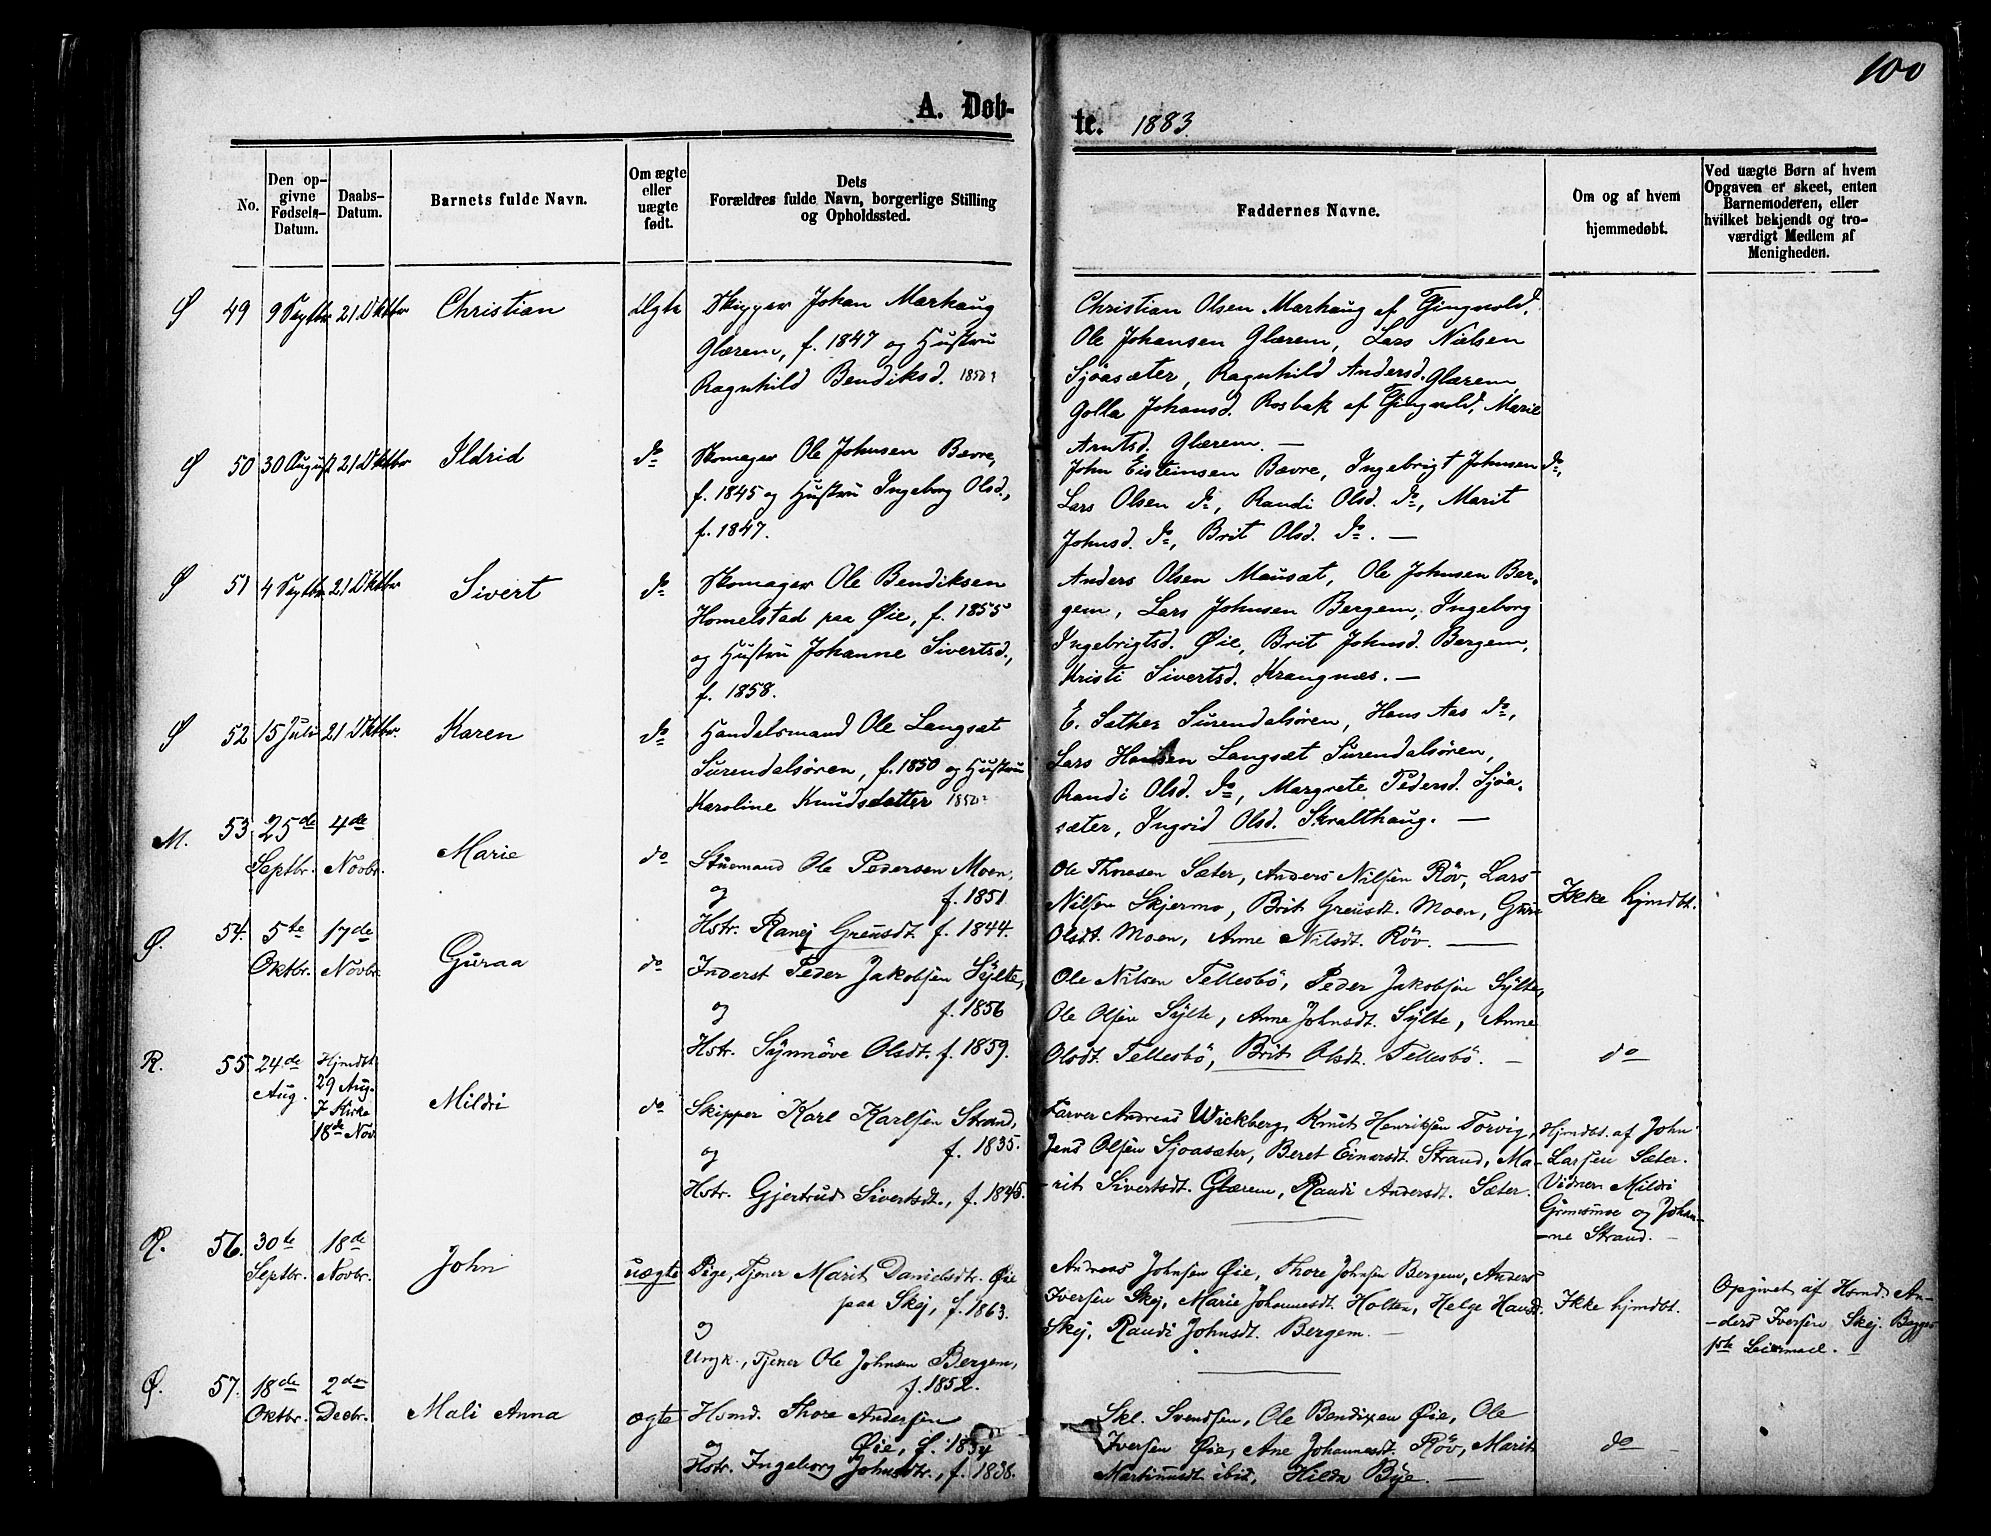 100
A. Døb-
te. 1883.
No.
Den op-
givne
Fødsels-
Datum.
Daabs-
Datum.
Barnets fulde Navn.
Om ægte
eller
uægte
født.
Dets
Forældres fulde Navn, borgerlige Stilling
og Opholdssted.
Faddernes Navne.
Om og af hvem
hjemmedøbt.
Ved uægte Børn af hvem
Opgaven er skeet, enten
Barnemoderen, eller
hvilket bekjendt og tro-
værdigt Medlem af
Menigheden.
Ø 49 9 Septbr 21 Oktbr Christian Ægte
Skipper Johan Markaug
Glærem, f. 1847 og Hustru
Ragnhild Bendiksd. 1850?
Christian Olsen Markaug af Tingvold,
Ole Johansen Glærem, Lars Nielsen
Sjøasæter, Ragnhild Andersd. Glærem
Golla Johansd. Rosbak af Tingvold, Marie
Arntsd. Glærem. —
Ø 50 30 August 21 Oktbr Ildrid do
Skomager Ole Johnsen Bævre,
f. 1845 og Hustru Ingeborg Olsd.,
f. 1847.
John Eisteinsen Bævre, Ingebrigt Johnsen do,
Lars Olsen do, Randi Olsd. do, Marit
Johnsd. do, Brit Olsd. do. —
Ø 51 4 Septbr 21 Oktbr Sivert do
Skomager Ole Bendiksen
Homelstad paa Øie, f. 1855
og Hustru Johanne Sivertsd.,
f. 1858.
Anders Olsen Mausæt, Ole Johnsen Ber-
gem, Lars Johnsen Bergem, Ingeborg
Ingebrigtsd. Øie, Brit Johnsd. Bergem,
Kristi Sivertsd. Krangnæs. —
Ø 52 15 Juli 21 Oktbr. Karen do
Handelsmand Ole Langsæt
Surendalsøren, f. 1850 og Hustru
Karoline Knudsdatter 1850?
E. Sæther Surendalsøren, Hans Aas do,
Lars Hansen Langsæt Surendalsøren,
Randi Olsd. do, Margrete Pedersd. Sjøa-
sæter, Ingrid Olsd. Skralthaug. —
M. 53 25de 4de
Septbr. Novbr. Marie do
Stuemand Ole Pedersen Moen,
og f. 1851
Hstr. Ranej Greusdt. f. 1844.
Ole Thoresen Sæter, Anders Nilsen Røv, Lars
Nilsen Skjermo, Brit Greusdt. Moen, Guri
Olsdt. Moen, Anne Nilsdt. Røv. —
Ikke hjmdbt.
Ø. 54. 5te 17de
Oktbr. Novbr. Guraa do
Inderst Peder Jakobsen Sylte,
og f. 1856
Hstr. Synnøve Olsdt. f. 1859.
Ole Nilsen Tellesbø, Peder Jakobsen Sylte,
Ole Olsen Sylte, Anne Johnsdt. Sylte, Anne
Olsdt. Tellesbø, Brit Olsdt. Tellesbø. —
do
R. 55 24de Hjmdbt.
Aug. 29 Aug.
I Kirke
18de Nov. Mildri do
Skipper Karl Karlsen Strand,
og f. 1835.
Hstr. Gjertrud Sivertsdt., f. 1845.
Farver Andreas Wickberg, Knut Henriksen Torvig,
Jens Olsen Sjøasæter, Beret Einersdt. Strand, Ma-
-rit Sivertsdt. Glærem, Randi Andersdt. Sæter.
Hjmdbt. af John
Larsen Sæter.
Vidner Mildri
Grimsmoe og Johan-
-ne Strand. —
R. 56. 30te 18de
Septbr. Novbr. John uægte
Pige, Tjener Marit Danielsdtr. Øie
paa Skej, f. 1863.
og
Ungk., Tjener Ole Johnsen Bergem,
f. 1852.
Andreas Johnsen Øie, Thore Johnsen Bergem, Anders
Iversen Skej, Marie Johannesdt. Holten, Helge Hansd.
Skej, Randi Johnsdt. Bergem. —
Ikke hjmdbt.
Opgivet af Hsmd. An-
-ders Iversen Skej. Begges
1ste Leiermaal. —
Ø. 57. 18de 2den
Oktbr. Decbr. Mali Anna ægte
Hsmd. Thore Andersen
og Øie, f. 1834
Hstr. Ingeborg Johnsdtr., f. 1838.
Skl. Svendsen, Ole Bendixen Øie, Ole
Iversen Øie, Ane Johannesdt. Røv, Marit
Martinusdt. ibid, Hilda Bye. —
do